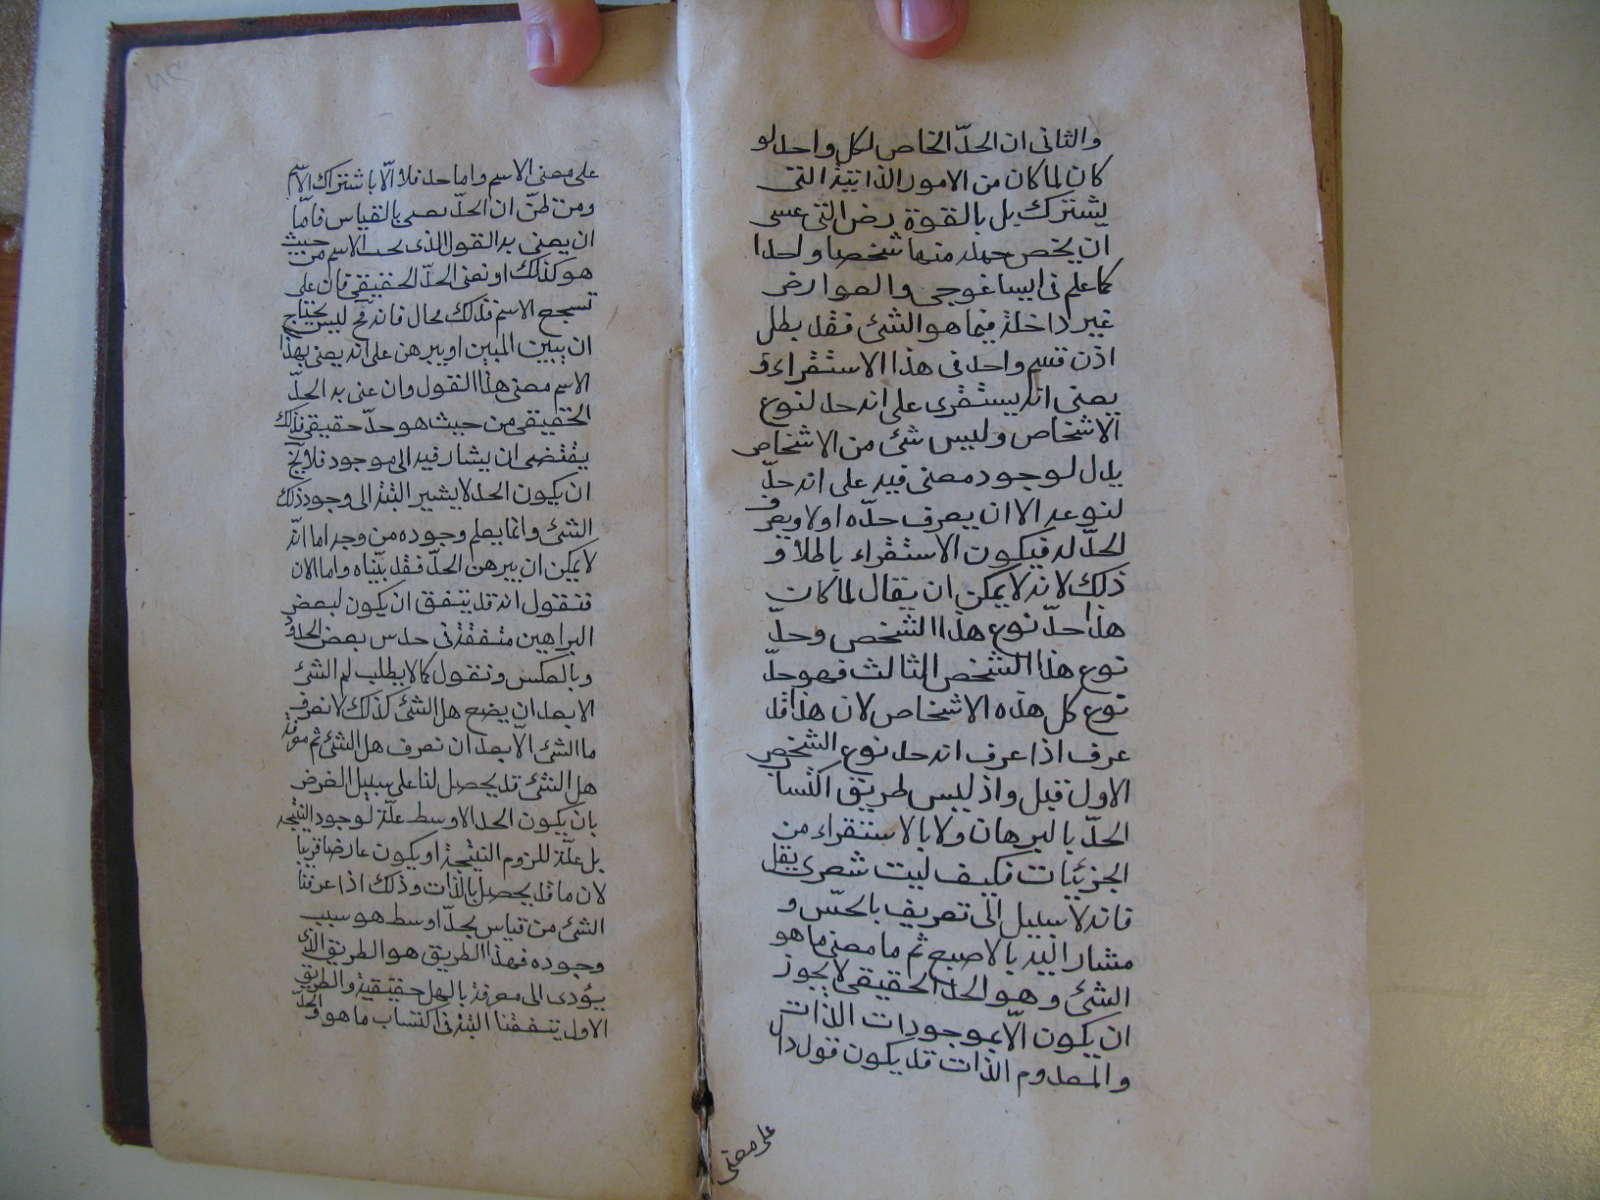 والثانى ان الحدّ الخاص لكل واحد لو
كان لما كان من الامور الذاتية التى
يشترك بل بالقوة رض التى عسى
ان يخص جملة منها شخصا واحدا
كما علم فى ايساغوجى والعوارض
غير داخلة فيما هو الشئ فقد بطل
اذن قسم واحد فى هذا الاستقراء و
يعنى انه يستقرى على انه حد لنوع
الاشخاص وليس شئ من الاشخاص
يدل لوجود معنى فيه على انه حدّ
لنوعه الا ان يعرف حدّه اولا ويعرف
الحدّ له فيكون الاستقراء باطلا و
ذلك لانه لا يمكن ان يقال لما كان
هذا حدّ نوع هذا الشخص وحدّ
نوع هذا الشخص الثالث فهو حدّ
نوع كل هذه الاشخاص لان هذا قد
عرف اذا عرف انه حد نوع الشخص
الاول قيل واذ ليس طريق اكتسا
الحدّ بالبرهان ولا بالاستقراء من
الجزئيات فكيف ليت شعرى يقل
فانه لا سبيل الى تعريف بالحسّ و
مشار اليه بالاصبع ثم ما معنى ما هو
الشئ وهو الحدّ الحقيقى لا يجوز
ان يكون الّا بموجودات الذات
والمعدوم الذات قد يكون قول دال
على معنى
على معنى الاسم واما حد فلا الّا باشتراك الاسم
ومن ظنّ ان الحدّ يعنى بالقياس فامّا
ان يعنى به القول الذى بحسب الاسم من حيث
هو كذلك او نعنى الحدّ الحقيقى فان على
الاسم فذلك محال فانه ح ليس يحتاج
ان يبين المبين او يبرهن على انه يعنى بهذا
الاسم معنى هذا القول وان عنى به الحدّ
الحقيقى من حيث هو حدّ حقيقى فذلك
يقتضى ان يشار فيه الى موجود فلا يخ
ان يكون الحد لا يشير البتة الى وجود ذلك
الشئ وانما يعلم وجوده من وجه اما انّه
لا يمكن ان يبرهن الحدّ فقد بيّناه واما الان
فنقول انه قد يتفق ان يكون لبعض
البراهين منفقة فى حدس بعض الحدود
وبالعكس ونقول كما لا يطلب لم الشئ
الا بعد ان يضح هل الشئ كذلك لا نعرف
ما الشئ الّا بعد ان نعرف هل الشئ ثم معرفة
هل الشئ قد يحصل لنا على سبيل الغرض
بان يكون الحد الاوسط علّة لوجود النتيجة
بل علّة للزوم النتيجة او يكون عارضا قريبا
لان ما قد يحصل بالذات وذلك اذا عرفنا
الشئ من قياس بحدّ اوسط هو سبب
وجوده فهذا الطريق هو الطريق الذى
يؤدى الى معرفة بالهل حقيقية والطريق
الاول ينفقنا البتة فى اكتساب ما هو والحدّ